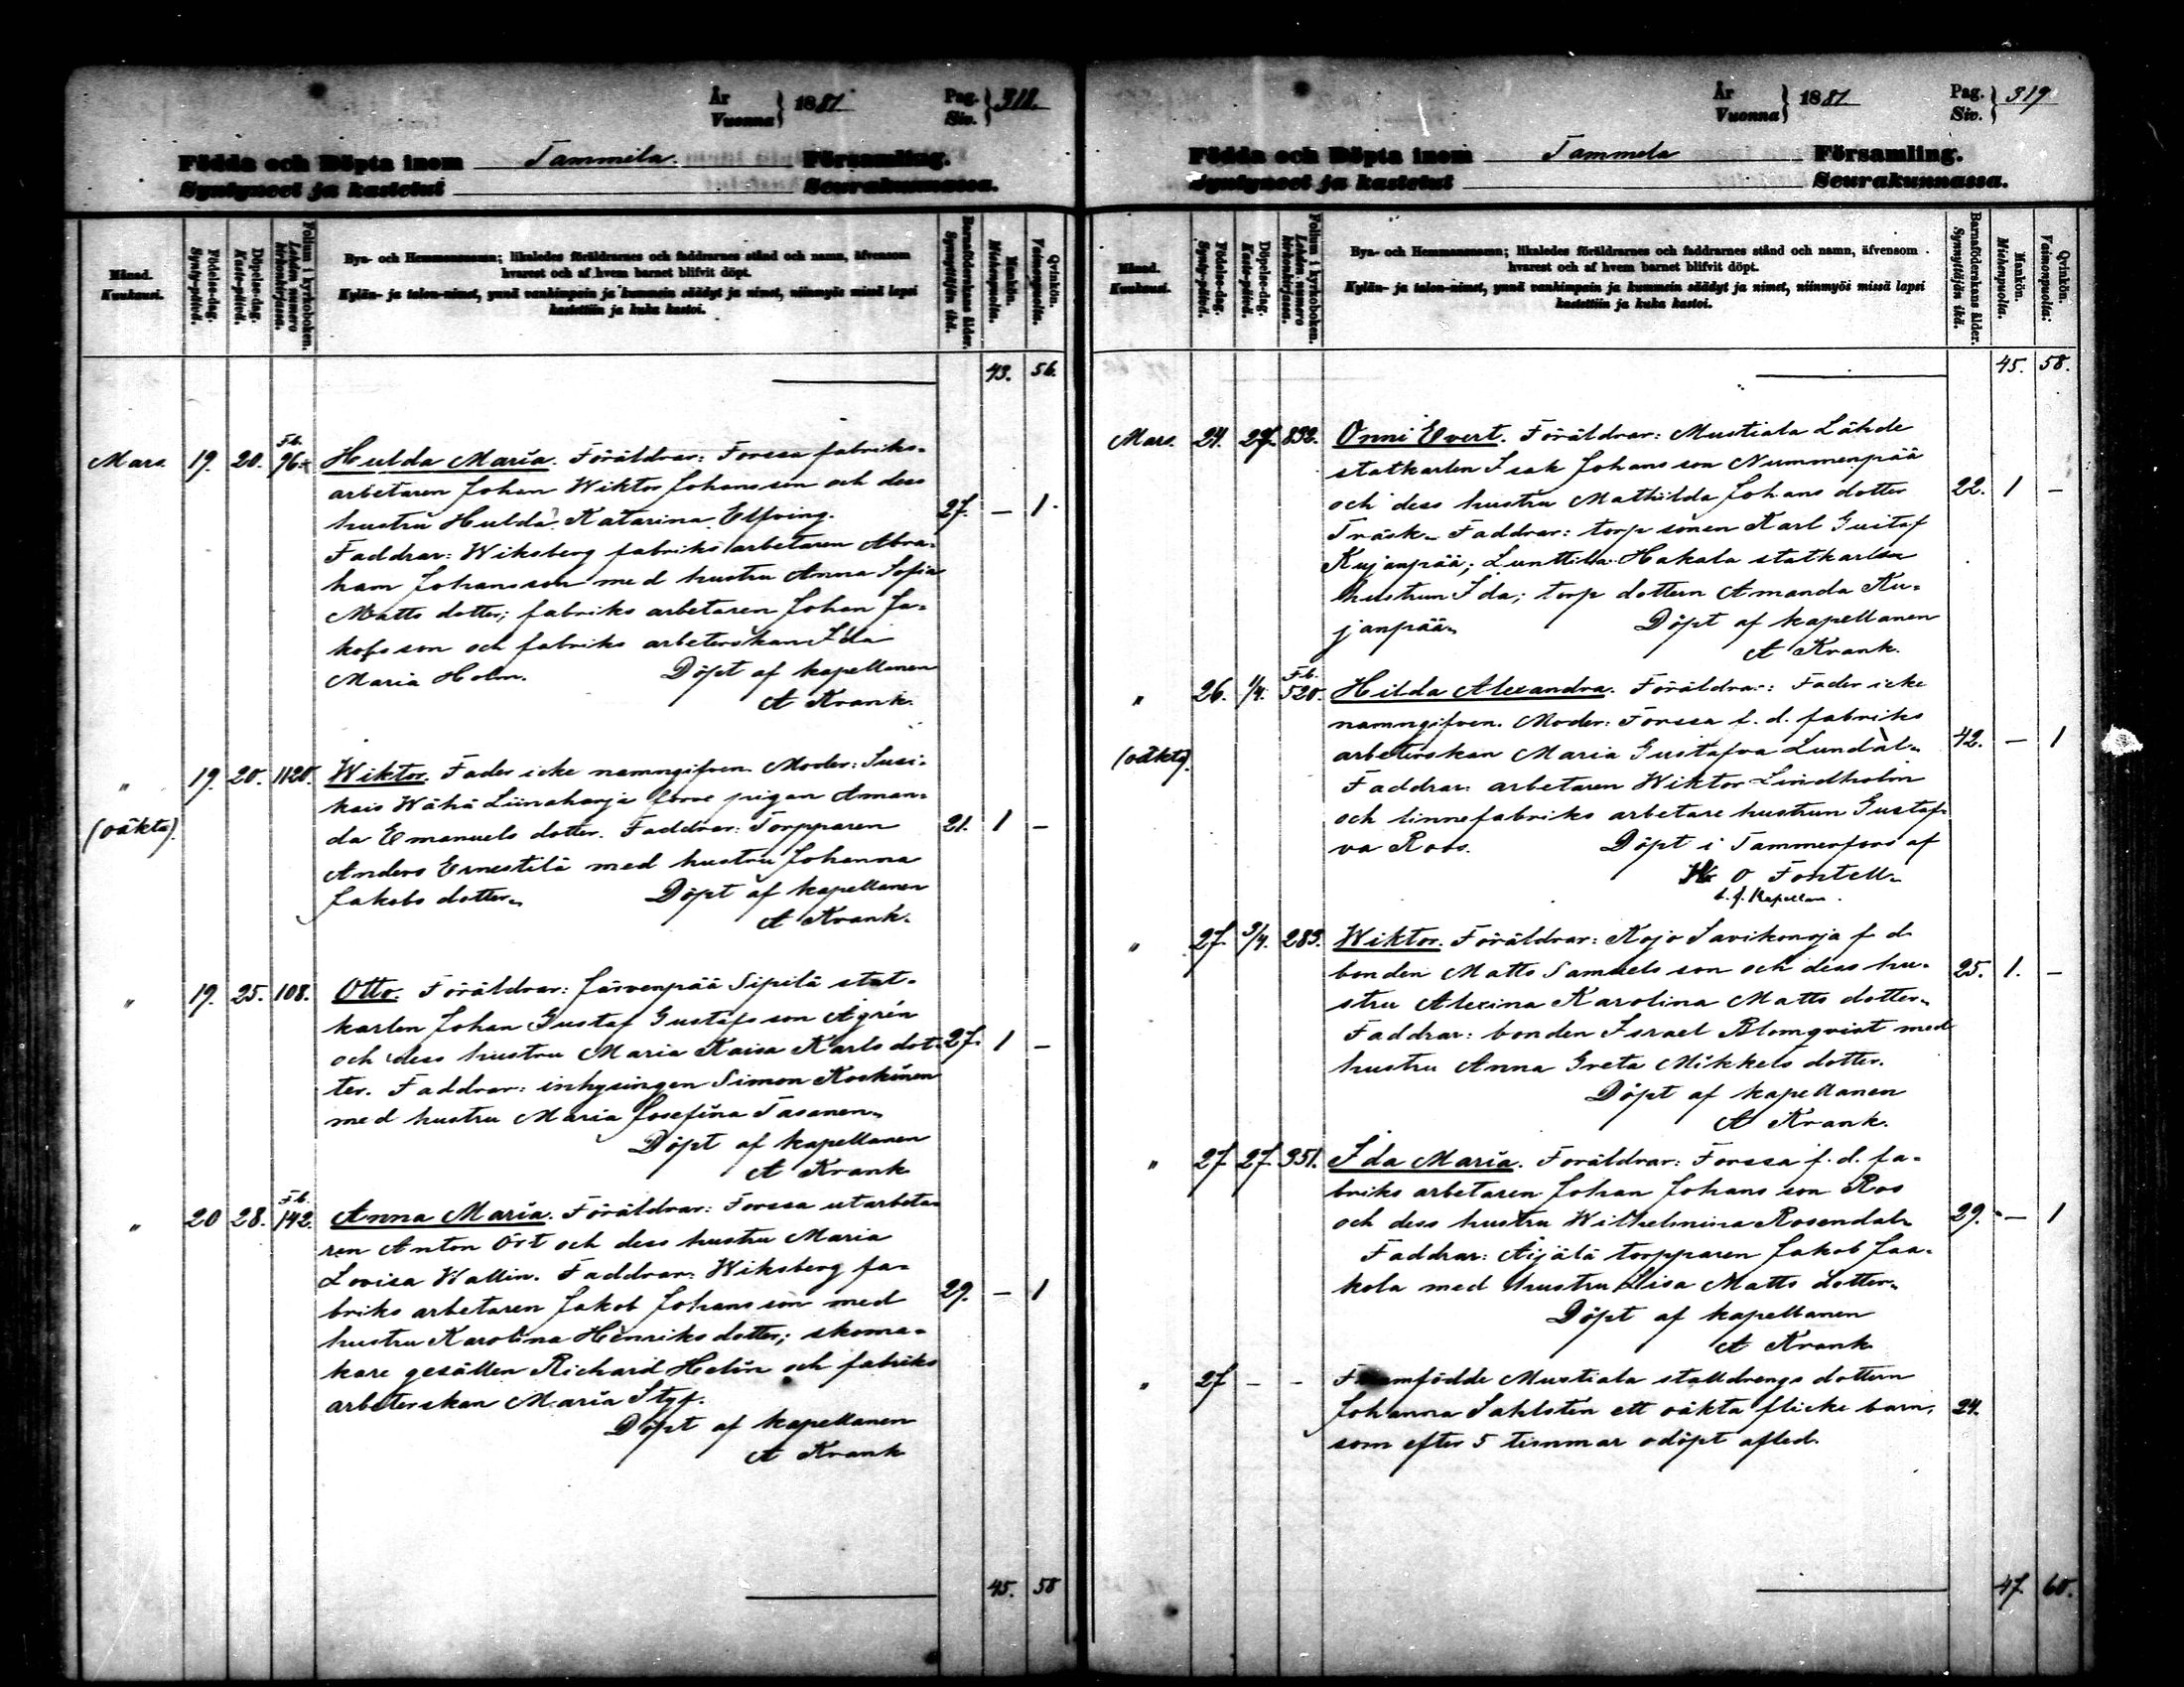 År
Vuonna } 1881 Pag.
Siv. } 318.
Födda och Döpta inom Tammela Församling.
Syntyneet ja kastetut Seurakunnassa.
Månad.
Kuukausi.
Födelse-dag.
Synty-päivä.
Döpelse-dag.
Kaste-päivä.
Folium i kyrkoboken.
Lehden numero
kirkonkirjassa.
Bya- och Hemmansnamn; likaledes föräldrarnes och faddrarnes stånd och namn, äfvensom
hvarest och af hvem barnet blifvit döpt.
Kylän- ja talon-nimet, ynnä vanhimpain ja kummein säädyt ja nimet, niinmyös missä lapsi
kastettiin ja kuka kastoi.
Barnaföderskans ålder.
Synnyttäjän ikä.
Mankön.
Miehenpuolia.
Qvinkön.
Vaimonpuolia.
43. 56.
Mars. 19. 20. Fb. 96 Hulda Maria. Föräldrar: Forssa fabriks-
arbetaren Johan Wiktor Johansson och dess
hustru Hulda Katarina Elfving. 27. — 1.
Faddrar: Wiksberg fabriks arbetaren Abra-
ham Johansson med hustru Anna Sofia
Matts dotter; fabriks arbetaren Johan Ja-
kobsson och fabriks arbeterskan Ida
Maria Holm. Döpt af kapellanen
A Krank.
" 19. 20. 1120. Wiktor. Fader icke namngifven. Moder: Susi-
(oäkta). kais Wähä Liinaharja förre pigan Aman-
da Emanuels dotter. Faddrar: Torpparen 21. 1 —
Anders Ernestilä med hustru Johanna
Jakobs dotter. Döpt af kapellanen
A Krank.
" 19. 25. 108. Otto. Föräldrar: Järvenpää Sipilä stat-
karlen Johan Gustaf Gustafsson Ågrén
och dess hustru Maria Kaisa Karls dot- 27. 1 —
ter. Faddrar: inhysingen Simon Koskinen
med hustru Maria Josefina Tasanen.
Döpt af kapellanen
A Krank
" 20 28. Fb. 142. Anna Maria. Föräldrar: Forssa utarbeta-
ren Anton Ört och dess hustru Maria
Lovisa Wallin. Faddrar: Wiksberg fa-
briks arbetaren Jakob Johansson med 29. — 1
hustru Karolina Henriksdotter; skoma-
kare gesällen Richard Helin och fabriks
arbeterskan Maria Styf.
Döpt af kapellanen
A Krank
45. 58
År
Vuonna } 1881 Pag.
Siv. } 319
Födda och Döpta inom Tammela Församling.
Syntyneet ja kastetut Seurakunnassa.
Månad.
Kuukausi.
Födelse-dag.
Synty-päivä.
Döpelse-dag.
Kaste-päivä.
Folium i kyrkoboken.
Lehden numero
kirkonkirjassa.
Bya- och Hemmansnamn; likaledes föräldrarnes och faddrarnes stånd och namn, äfvensom
hvarest och af hvem barnet blifvit döpt.
Kylän- ja talon-nimet, ynnä vanhimpain ja kummein säädyt ja nimet, niinmyös missä lapsi
kastettiin ja kuka kastoi.
Barnaföderskans ålder.
Synnyttäjän ikä.
Mankön.
Miehenpuolia.
Qvinkön.
Vaimonpuolia.
45. 58.
Mars. 24. 27. 832. Onni Evert. Föräldrar: Mustiala Lähde
statkarlen Isak Johansson Nummenpää
och dess hustru Mathilda Johans dotter 22. 1 —
Träsk. Faddrar: torp sonen Karl Gustaf
Kujanpää; Lunttila Hakala statkarlen
hustrun Ida; torp dottern Amanda Ku-
janpää. Döpt af kapellanen
A Krank.
" 26. 1/4. Fb. 520. Hilda Alexandra. Föräldrar: Fader icke
namngifven. Moder: Forssa f. d. fabriks
(oäkta). arbeterskan Maria Gustafva Lundål. 42. — 1
Faddrar: arbetaren Wiktor Lindholm
och linnefabriks arbetare hustrun Gustaf-
va Roos. Döpt i Tammerfors af
K O Fontell.
t. f. Kapellan.
" 27. 3/4. 283. Wiktor. Föräldrar: Kojo Savikonoja f. d.
bonden Matts Samuels son och dess hu- 25. 1. —
stru Alexina Karolina Matts dotter.
Faddrar: bonden Israel Blomqvist med
hustru Anna Greta Mikkels dotter.
Döpt af kapellanen
A Krank.
" 27 27. 351. Ida Maria. Föräldrar: Forssa f. d. fa-
briks arbetaren Johan Johansson Ros
och dess hustru Wilhelmina Rosendal. 29. — 1
Faddrar: Äijälä torpparen Jakob Jaa-
kola med hustru Lisa Matts dotter.
Döpt af kapellanen
A Krank
" 27 — — Framfödde Mustiala stalldrengs dottern
Johanna Sahlstén ett oäkta flicke barn, 24.
som efter 5 timmar odöpt afled.
47. 60.